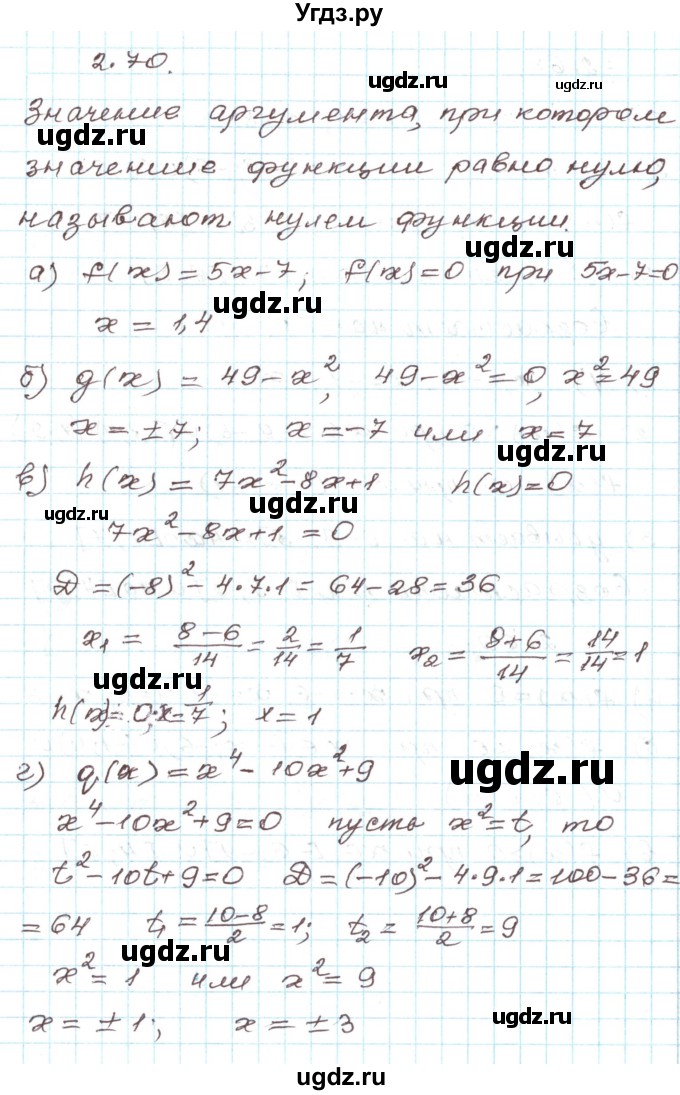 Угдз.ру
2.70.
ugdz.ru
ugdz.ru
Значение аргумента, при котором
ugdz.ru
значение функции равно нулю,
называют нулем функции.
ugdz.ru
а) f(x) = 5x-7; f(x)=0 при 5x-7=0
x = 1,4
ugdz.ru
б) g(x) = 49-x², 49-x²=0, x²=49
x = ±7; x=-7 или x=7
ugdz.ru
в) h(x) = 7x²-8x+1 h(x)=0
ugdz.ru
ugdz.ru
7x²-8x+1 = 0
D = (-8)² - 4·7·1 = 64-28 = 36
x₁ = (8-6)/14 = 2/14 = 1/7 x₂ = (8+6)/14 = 14/14 = 1
ugdz.ru
h(x)= 0; x = 1/7; x = 1
ugdz.ru
г) q(x) = x⁴ - 10x² + 9
x⁴-10x²+9=0 пусть x²=t, то
ugdz.ru
t²-10t+9=0 D=(-10)²-4·9·1=100-36=
= 64 t₁ = (10-8)/2 = 1; t₂ = (10+8)/2 = 9
ugdz.ru
x² = 1 или x² = 9
x = ±1; x = ±3
ugdz.ru
ugdz.ru